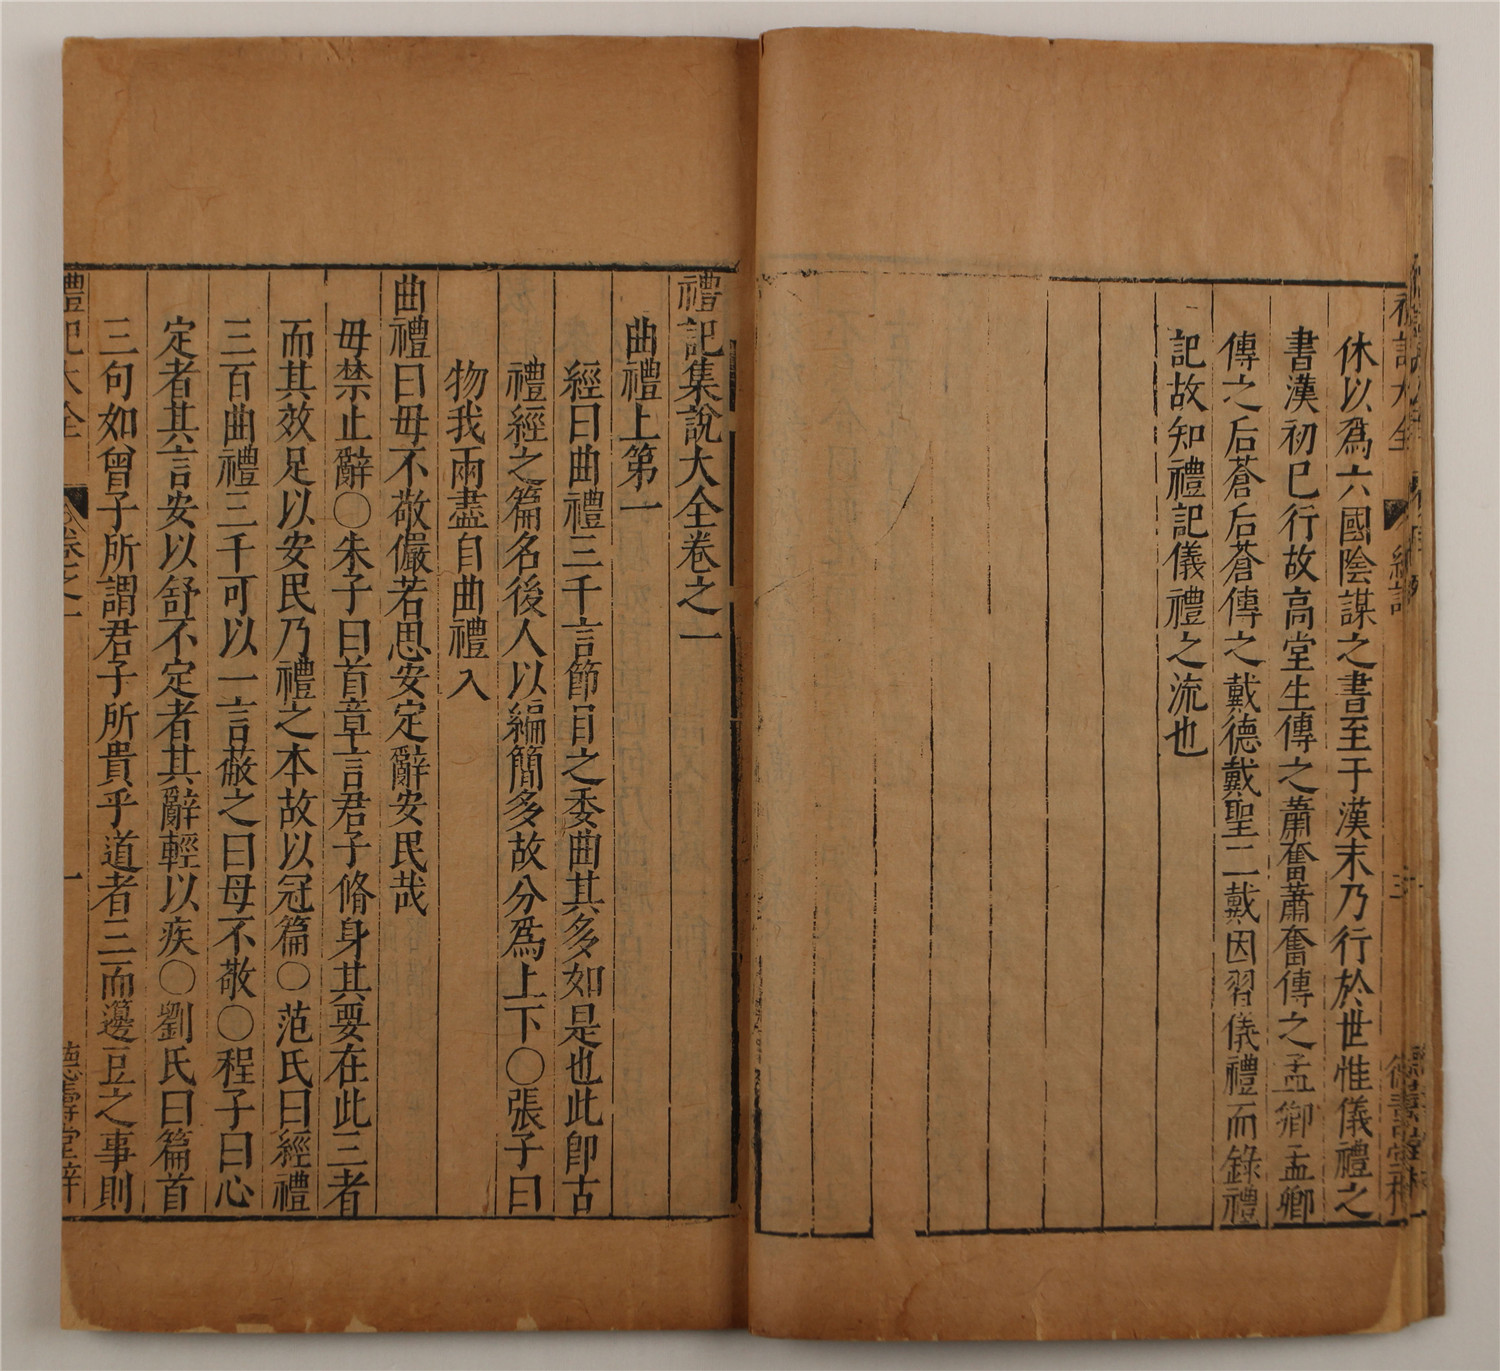 休以爲六國陰謀之書至于漢末乃行於世惟儀禮之
書漢初已行故高堂生傳之蕭奮蕭奮傳之孟卿孟卿
傳之后蒼后蒼傳之戴德戴聖二戴因習儀禮而錄禮
記故知禮記儀禮之流也
禮記集說大全卷之一
曲禮上第一
經曰曲禮三千言節目之委曲其多如是也此卽古
禮經之篇名後人以編簡多故分爲上下〇張子曰
物我兩盡自曲禮入
曲禮曰毋不敬儼若思安定辭安民哉
毋禁止辭〇朱子曰首章言君子脩身其要在此三者
而其效足以安民乃禮之本故以冠篇〇范氏曰經禮
三百曲禮三千可以一言蔽之曰毋不敬〇程子曰心
定者其言安以舒不定者其辭輕以疾〇劉氏曰篇首
三句如曾子所謂君子所貴乎道者三而籩豆之事則
禮記大全 卷之一 一 德壽堂梓